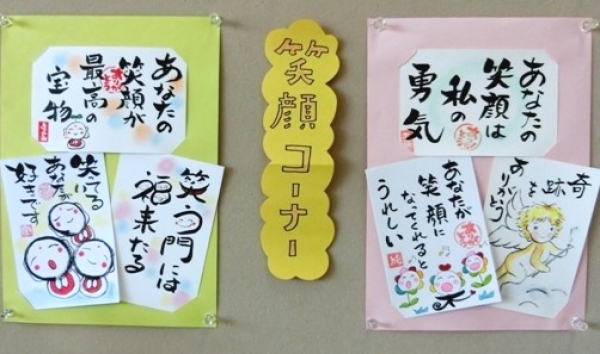 あなたの
笑顔が
最高の
宝物
笑う門には
福来たる
笑ってる
あなたが
好きです
笑顔コーナー
あなたの
笑顔は
私の
勇気
奇跡を
ありがとう
あなたが
笑顔に
なってくれると
うれしい